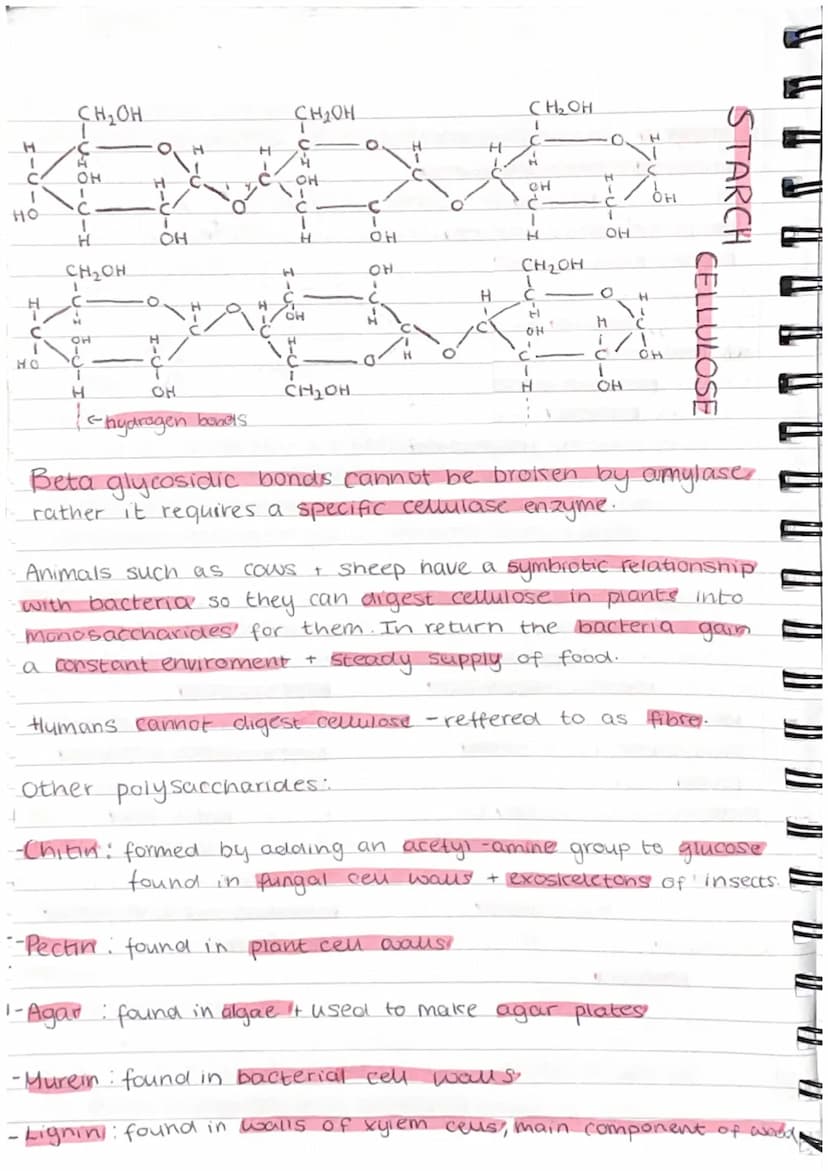 STARCH
CH₂OH CH₂OH CH₂OH
H C O H H C O H H C O H
C H OH H C C H OH C C H OH H C
HO C C O C C O C C OH
H OH H OH H OH
CELLULOSE
CH₂OH H OH CH₂OH
H C O H O H C C H C O H
C H OH H C C OH H C C H OH H C
HO C C H C O H O C C OH
H OH CH₂OH H OH
← hydrogen bonds
Beta glycosidic bonds cannot be broken by amylase
rather it requires a specific cellulase enzyme.
Animals such as cows + sheep have a symbiotic relationship
with bacteria so they can digest cellulose in plants into
monosaccharides for them. In return the bacteria gain
a constant enviroment + steady supply of food.
Humans cannot digest cellulose - reffered to as fibre.
Other polysaccharides:
- Chitin: formed by adding an acetyl-amine group to glucose
found in fungal cell walls + exoskeletons of insects.
- Pectin: found in plant cell walls
- Agar: found in algae + used to make agar plates
- Murein: found in bacterial cell walls
- Lignin: found in walls of xylem cells, main component of wood